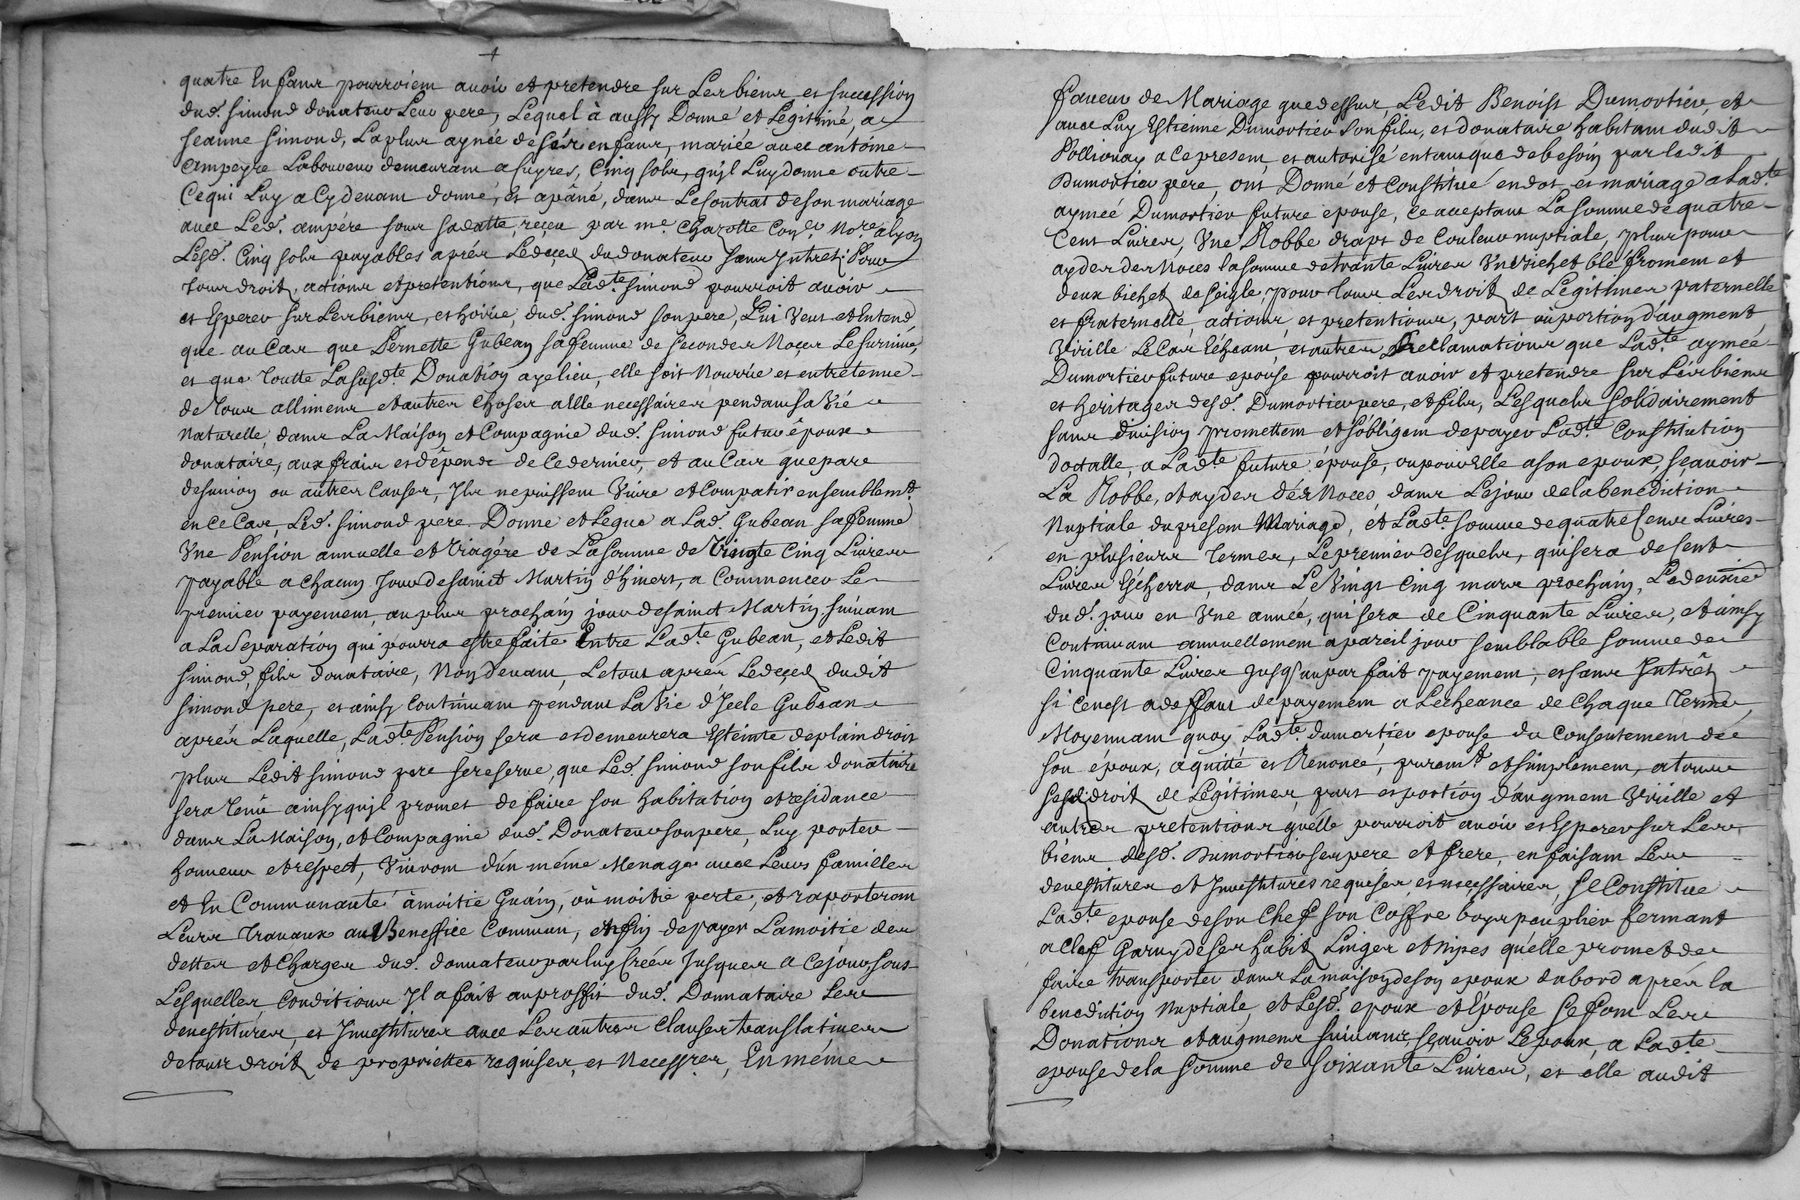 quatre Enfans pourroient avoir et pretendre sur Les biens et succession
dud. simond donateur Leur pere, Lequel à aussy Donné et Legitimé, a
Jeanne simond, La plus aynée de ses enfans, mariée avec antóine
ampeyre Laboureur demeurant a Cinq sols, qu'jl Luy donne outre
Ce qui Luy a Cy devant donné, et apâné, dans Le Contrat de son mariage
avec Led. ampére sous sa datte, reçeu par me. Charotte Coner. No.re a Lyon
Lesd. Cinq sols payables aprés Le deçed du donateur sans Jntrest, Pour
tous droits, actions et pretentions, que Lad.te simond pourroit avoir
et Esperer sur Les biens, et hoirie, dud. simond son pere, Lui Veut et Entend
que au Cas que Pernette Gubean sa femme de secondes Noçes Le survive,
et que toutte La susd.te Donation aye lieu, elle soit Nourrie et entretenue
de tous allimens et autres Choses a Elle necessaires pendant sa Vie
Naturelle, dans La Maison et Compagnie dud. simond futur êpoux
donataire, aux frais et dêpends de Ce dernier, et au Cas que par
desunion ou autres Causes, Jls ne puissent Vivre et Compatir ensemblemt.
en Ce Cas, Led. simond pere Donne et Legue a Lad. Gubean sa femme
Vne Pension annuelle et Viagére de La somme de Vingte Cinq Livres
payable a chacun Jour de sainct Martin d'hivers, a Commencer Le
premier payement, au plus prochain jour de sainct Martin suivant
a La Separation qui pourra estre faite Entre Lad.te Gubean, et Ledit
simond, fils donataire, Non devant, Le tout aprés Le deçed dudit
simond pere, et ainsy Continuant pendant La Vie d'Jcele Gubean
aprés Laquelle, Lad.te Pension sera et demeurera Esteinte de plain droit
plus Ledit simond pere se reserve, que Led. simond son fils donataire
sera tenû ainsy qu'jl promet de faire son habitation et residance
dans La Maison, et Compagnie dud. Donateur son pere, Luy porter
honneur et respect, Vivront d'un même Menage avec Leurs familles
et En Communauté à moitié Guain, où moitié perte, et raporteront
Leurs travaux au Beneffice Commun, et de payer La moitié des
dettes et Charges dud. donnateur par luy Créés Jusques a Ce jour sous
Lesquelles Conditions Jl a fait au proffit dud. Donnataire Les
devestitures, et Jnvestitures avec Les autres Clauses translatives
de tous droits de propriettes requises, et Necessres, En même
faveur de Mariage que dessus, Ledit Benoist Dumortier, et
avec Luy Estienne Dumortier son fils, et donataire habitant dudit
Pollionay a Ce present, et autorisé entant que de besoin par Ledit
Dumortier pere, ont Donné et Constitué en dot et mariage a Lad.te
aymeé Dumortier future epouse, Ce acceptant La somme de quatre
Cens Livres, Vne Robbe draps de Couleur nuptiale, plus pour
ayder des Noces la somme de trante Livres Vn bichet blé froment et
deux bichets de seigle, pour tous Les droits de Legitimes paternelle
et fraternelle, actions et pretentions, part où portion d'augment
Virille Le Cas Echeant, et autres Reclamations que Lad.te aymeé
Dumortier future epouse pourroit avoir et pretendre sur Les biens
et heritages desd. Dumortier pere, et fils, Lesquels solidairement
sans division promettent et sobligent de payer Lad.te Constitution
dotalle, a Lad.te future épouse, ou pour Elle a son epoux, sçavoir
La Robbe, et ayder dés Noces dans Le jour de la benediction
Nuptiale du present Mariage, et Lad.te somme de quatre Cens Livres
en plusieurs termes, Le premier désquels, qui sera de Cent
Livres Escherra, dans Le Vingt Cinq mars prochain, Le deuxié
dud. jour en Vne année, qui sera de Cinquante Livres, et ainsy
Continuant annuellement a pareil jour semblable somme de
Cinquante Livres jusqu'au parfait payement, et sans Jntrêt
si Ce n'est a deffaut de payement a Lecheance de Chaque terme,
Moyennant quoy Lad.te dumortier epouse du Consentement de
son epoux, a quitté et Renoncé, puremt. et simplement, a tous
sesd. droits de Légitimes, part et portion d'augment Virille et
autres pretentions qu'elle pourroit avoir et Esperer sur Les
biens desd. Dumortier ses pere et frere, en faisant Les
devestitures et Jnvestitures requises et necessaires, se Constitue
Lad.te epouse de son Chef son Coffre boys peuplier fermant
a Clef Garny de ses habits Linges et nipes qu'elle promet de
faire transporter dans La maison de son epoux dabord aprés la
benediction Nuptiale, et Lesd. epoux et Epouse se font Les
Donations et augment suivans, sçavoir Lepoux, a Lad.te
epouse de la somme de soixante Livres, et elle audit